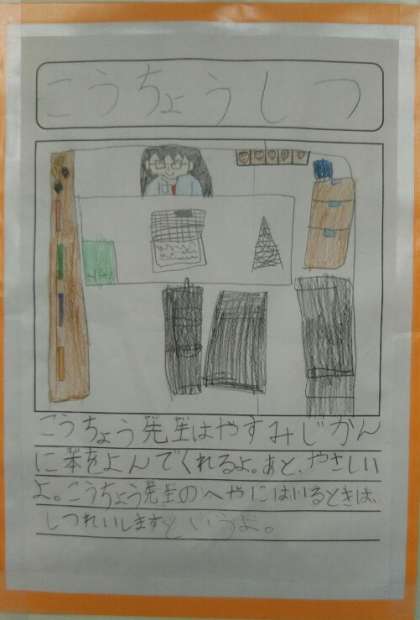 こうちょうしつ
こうちょう先生はやすみじかん
に本をよんでくれるよ。あと、やさしい
よ。こうちょう先生のへやにはいるときは、
しつれいしますというよ。